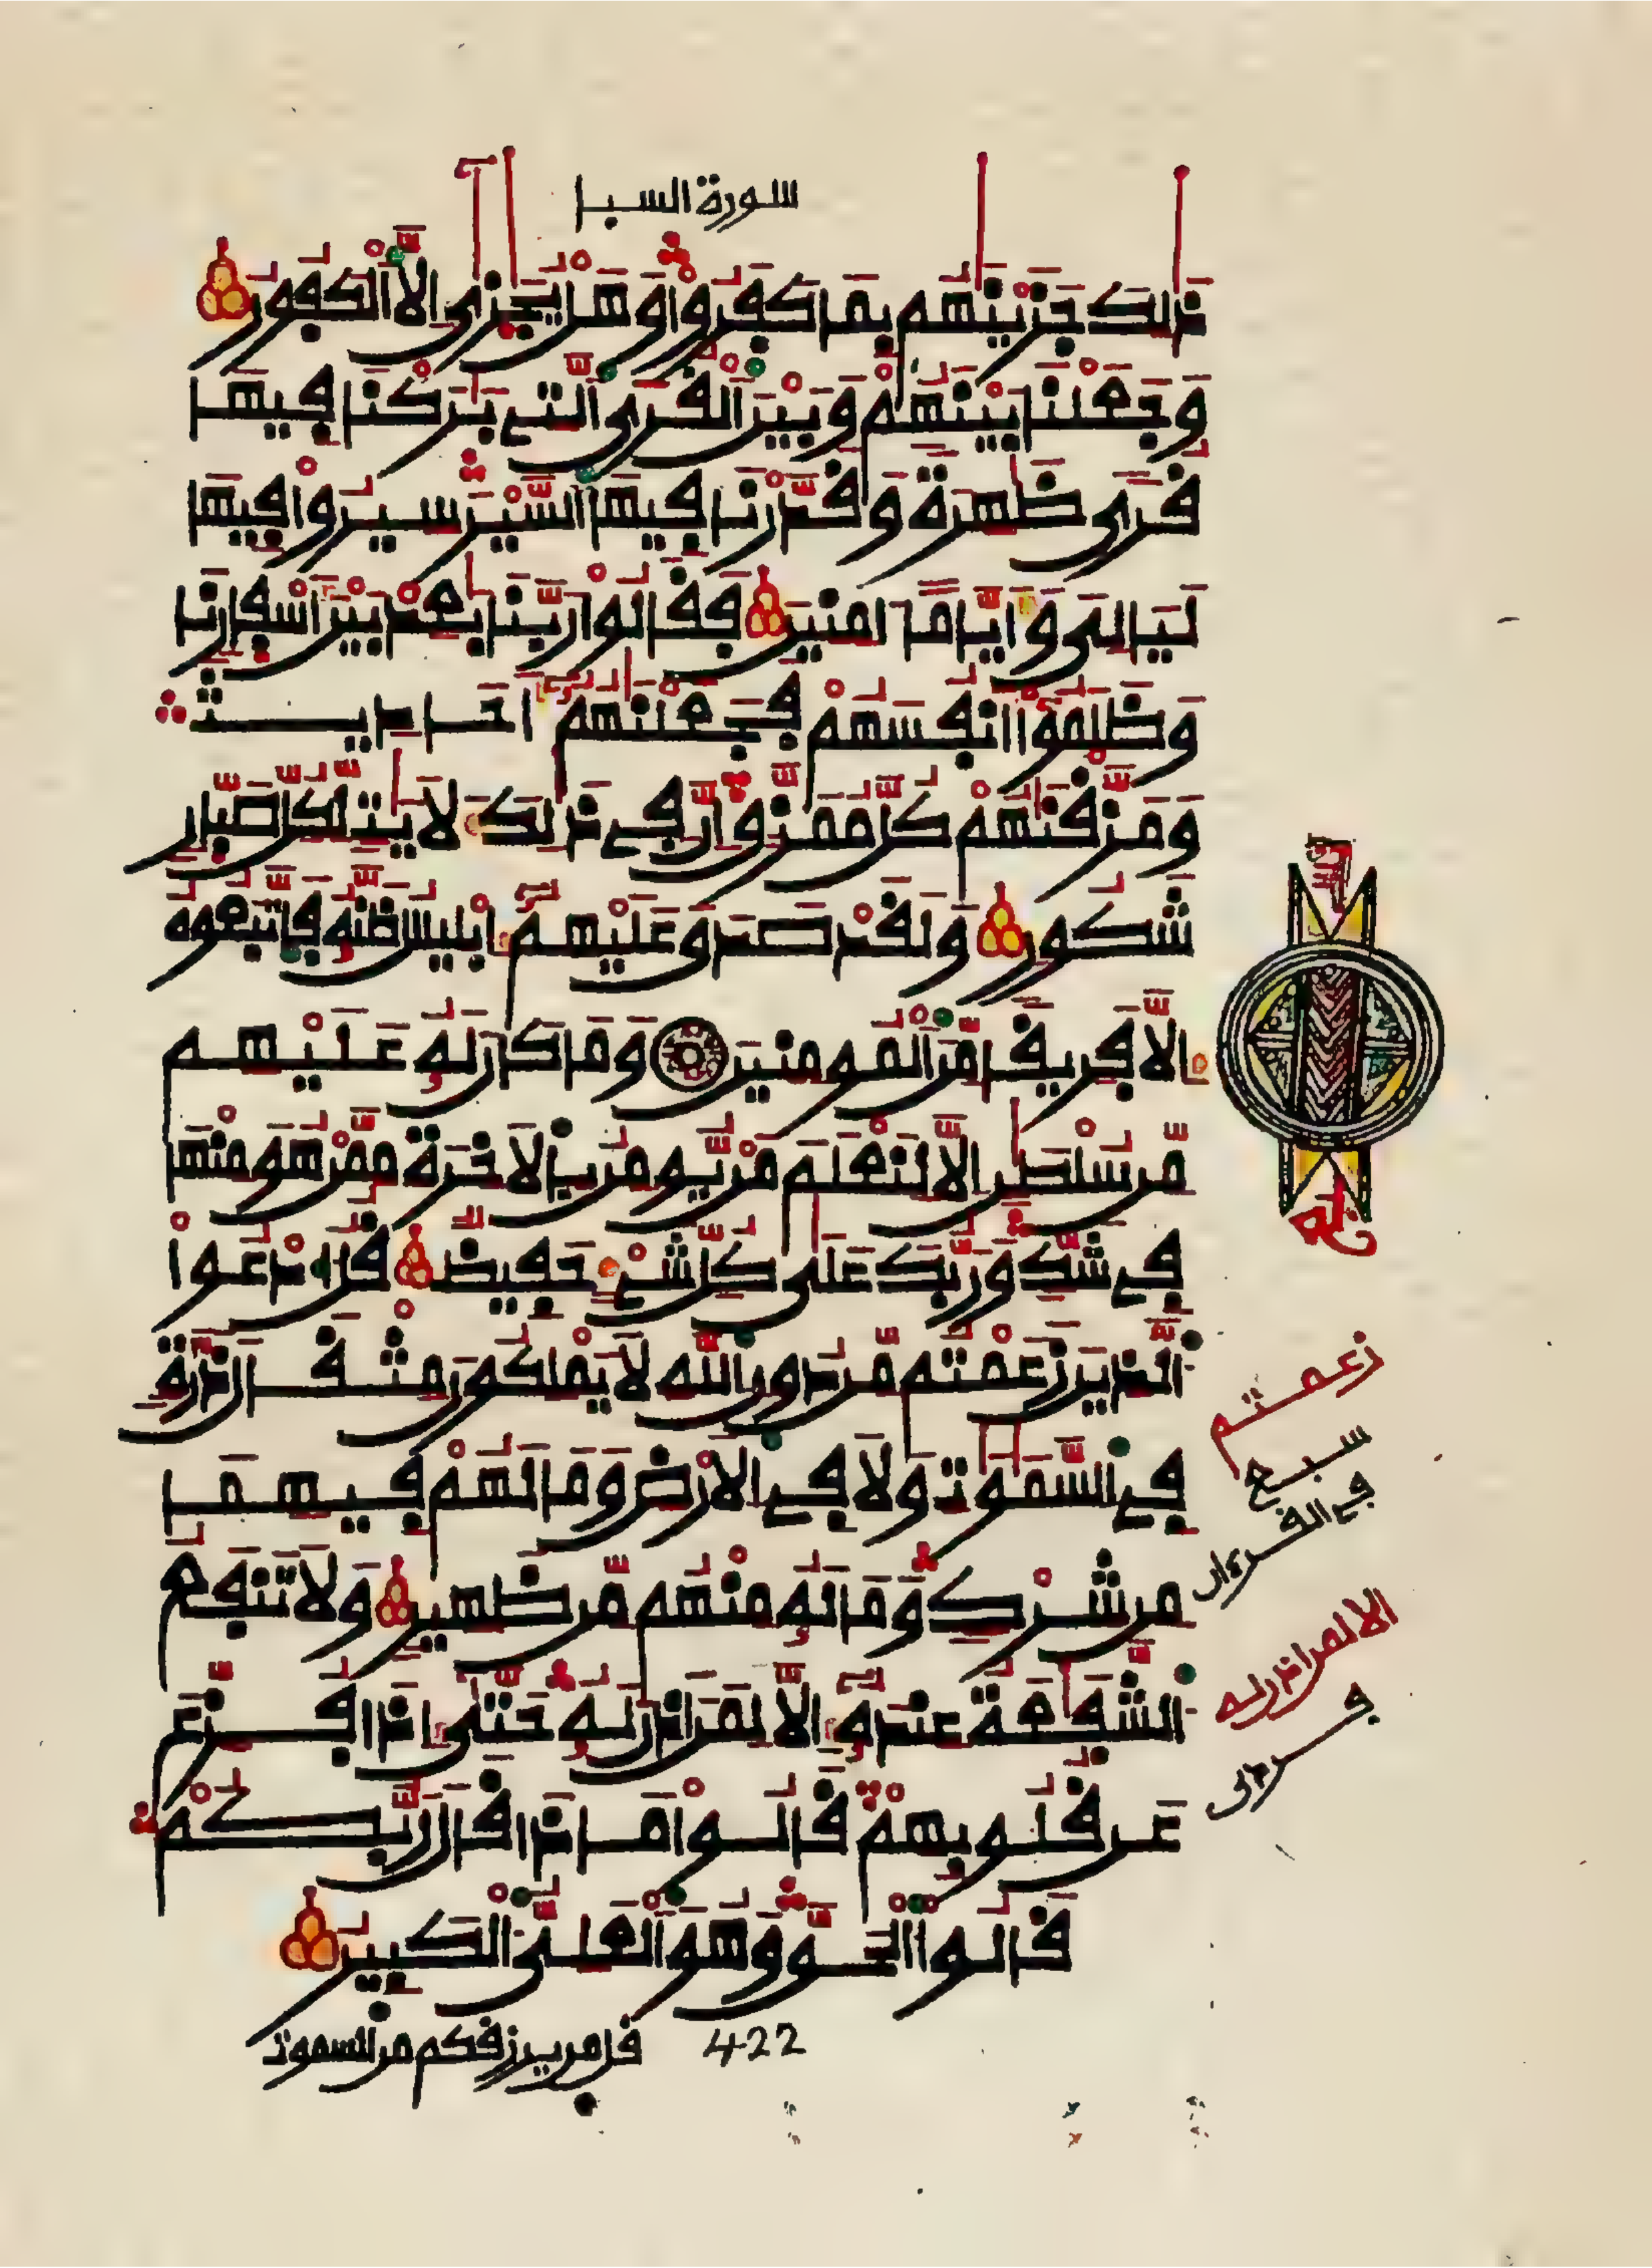 سورة السبا
ذَٰلِكَ جَزَيْنَٰهُم بِمَا كَفَرُوا۟ وَهَلْ يُجَٰزَىٰٓ إِلَّا ٱلْكَفُورُ
وَجَعَلْنَا بَيْنَهُمْ وَبَيْنَ ٱلْقُرَى ٱلَّتِے بَٰرَكْنَا فِيهَا
قُرًى ظَٰهِرَةً وَقَدَّرْنَا فِيهَا ٱلسَّيْرَ سِيرُوا۟ فِيهَا
لَيَالِىَ وَأَيَّامًا ءَامِنِينَ فَقَالُوا۟ رَبَّنَا بَٰعِدْ بَيْنَ أَسْفَارِنَا
وَظَلَمُوٓا۟ أَنفُسَهُمْ فَجَعَلْنَٰهُمُۥٓ أَحَادِيثَ
وَمَزَّقْنَٰهُمْ كُلَّ مُمَزَّقٍ إِنَّ فِے ذَٰلِكَ لَأٓيَٰتٍ لِّكُلِّ صَبَّارٍ
شَكُورٍ وَلَقَدْ صَدَقَ عَلَيْهِمُۥٓ إِبْلِيسُ ظَنَّهُۥ فَٱتَّبَعُوهُ
إِلَّا فَرِيقًا مِّنَ ٱلْمُومِنِينَ وَمَا كَانَ لَهُۥ عَلَيْهِم
مِّن سُلْطَٰنٍ إِلَّا لِنَعْلَمَ مَنْ يُّومِنُ بِالَاخِرَةِ مِمَّنْ هُوَ مِنْهَا
فِے شَكٍّ وَرَبُّكَ عَلَىٰ كُلِّ شَےْءٍ حَفِيظٌ قُلُ ٱدْعُوا۟
ٱلَّذِينَ زَعَمْتُم مِّن دُونِ ٱللَّهِ لَا يَمْلِكُونَ مِثْقَالَ ذَرَّةٍ
فِے ٱلسَّمَٰوَٰتِ وَلَا فِے ٱلَارْضِ وَمَا لَهُمْ فِيهِمَا
مِن شِرْكٍ وَمَا لَهُۥ مِنْهُم مِّن ظَهِيرٍ وَلَا تَنفَعُ
ٱلشَّفَٰعَةُ عِندَهُۥٓ إِلَّا لِمَنْ أَذِنَ لَهُۥ حَتَّىٰٓ إِذَا فُزِّعَ
عَن قُلُوبِهِمْ قَالُوا۟ مَاذَا قَالَ رَبُّكُمْ
قَالُوا۟ ٱلْحَقَّ وَهُوَ ٱلْعَلِىُّ ٱلْكَبِيرُ
زعمتم
سبع
في القرءان
الا لمن اذن له
فردى
422
قل من يرزقكم من السموت